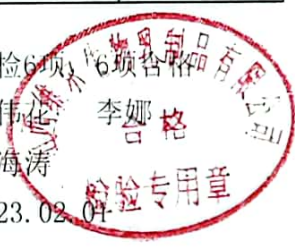 检6项，6项合格
伟花 李娜
海涛
23.02.01
制品有限公司
合格
检验专用章